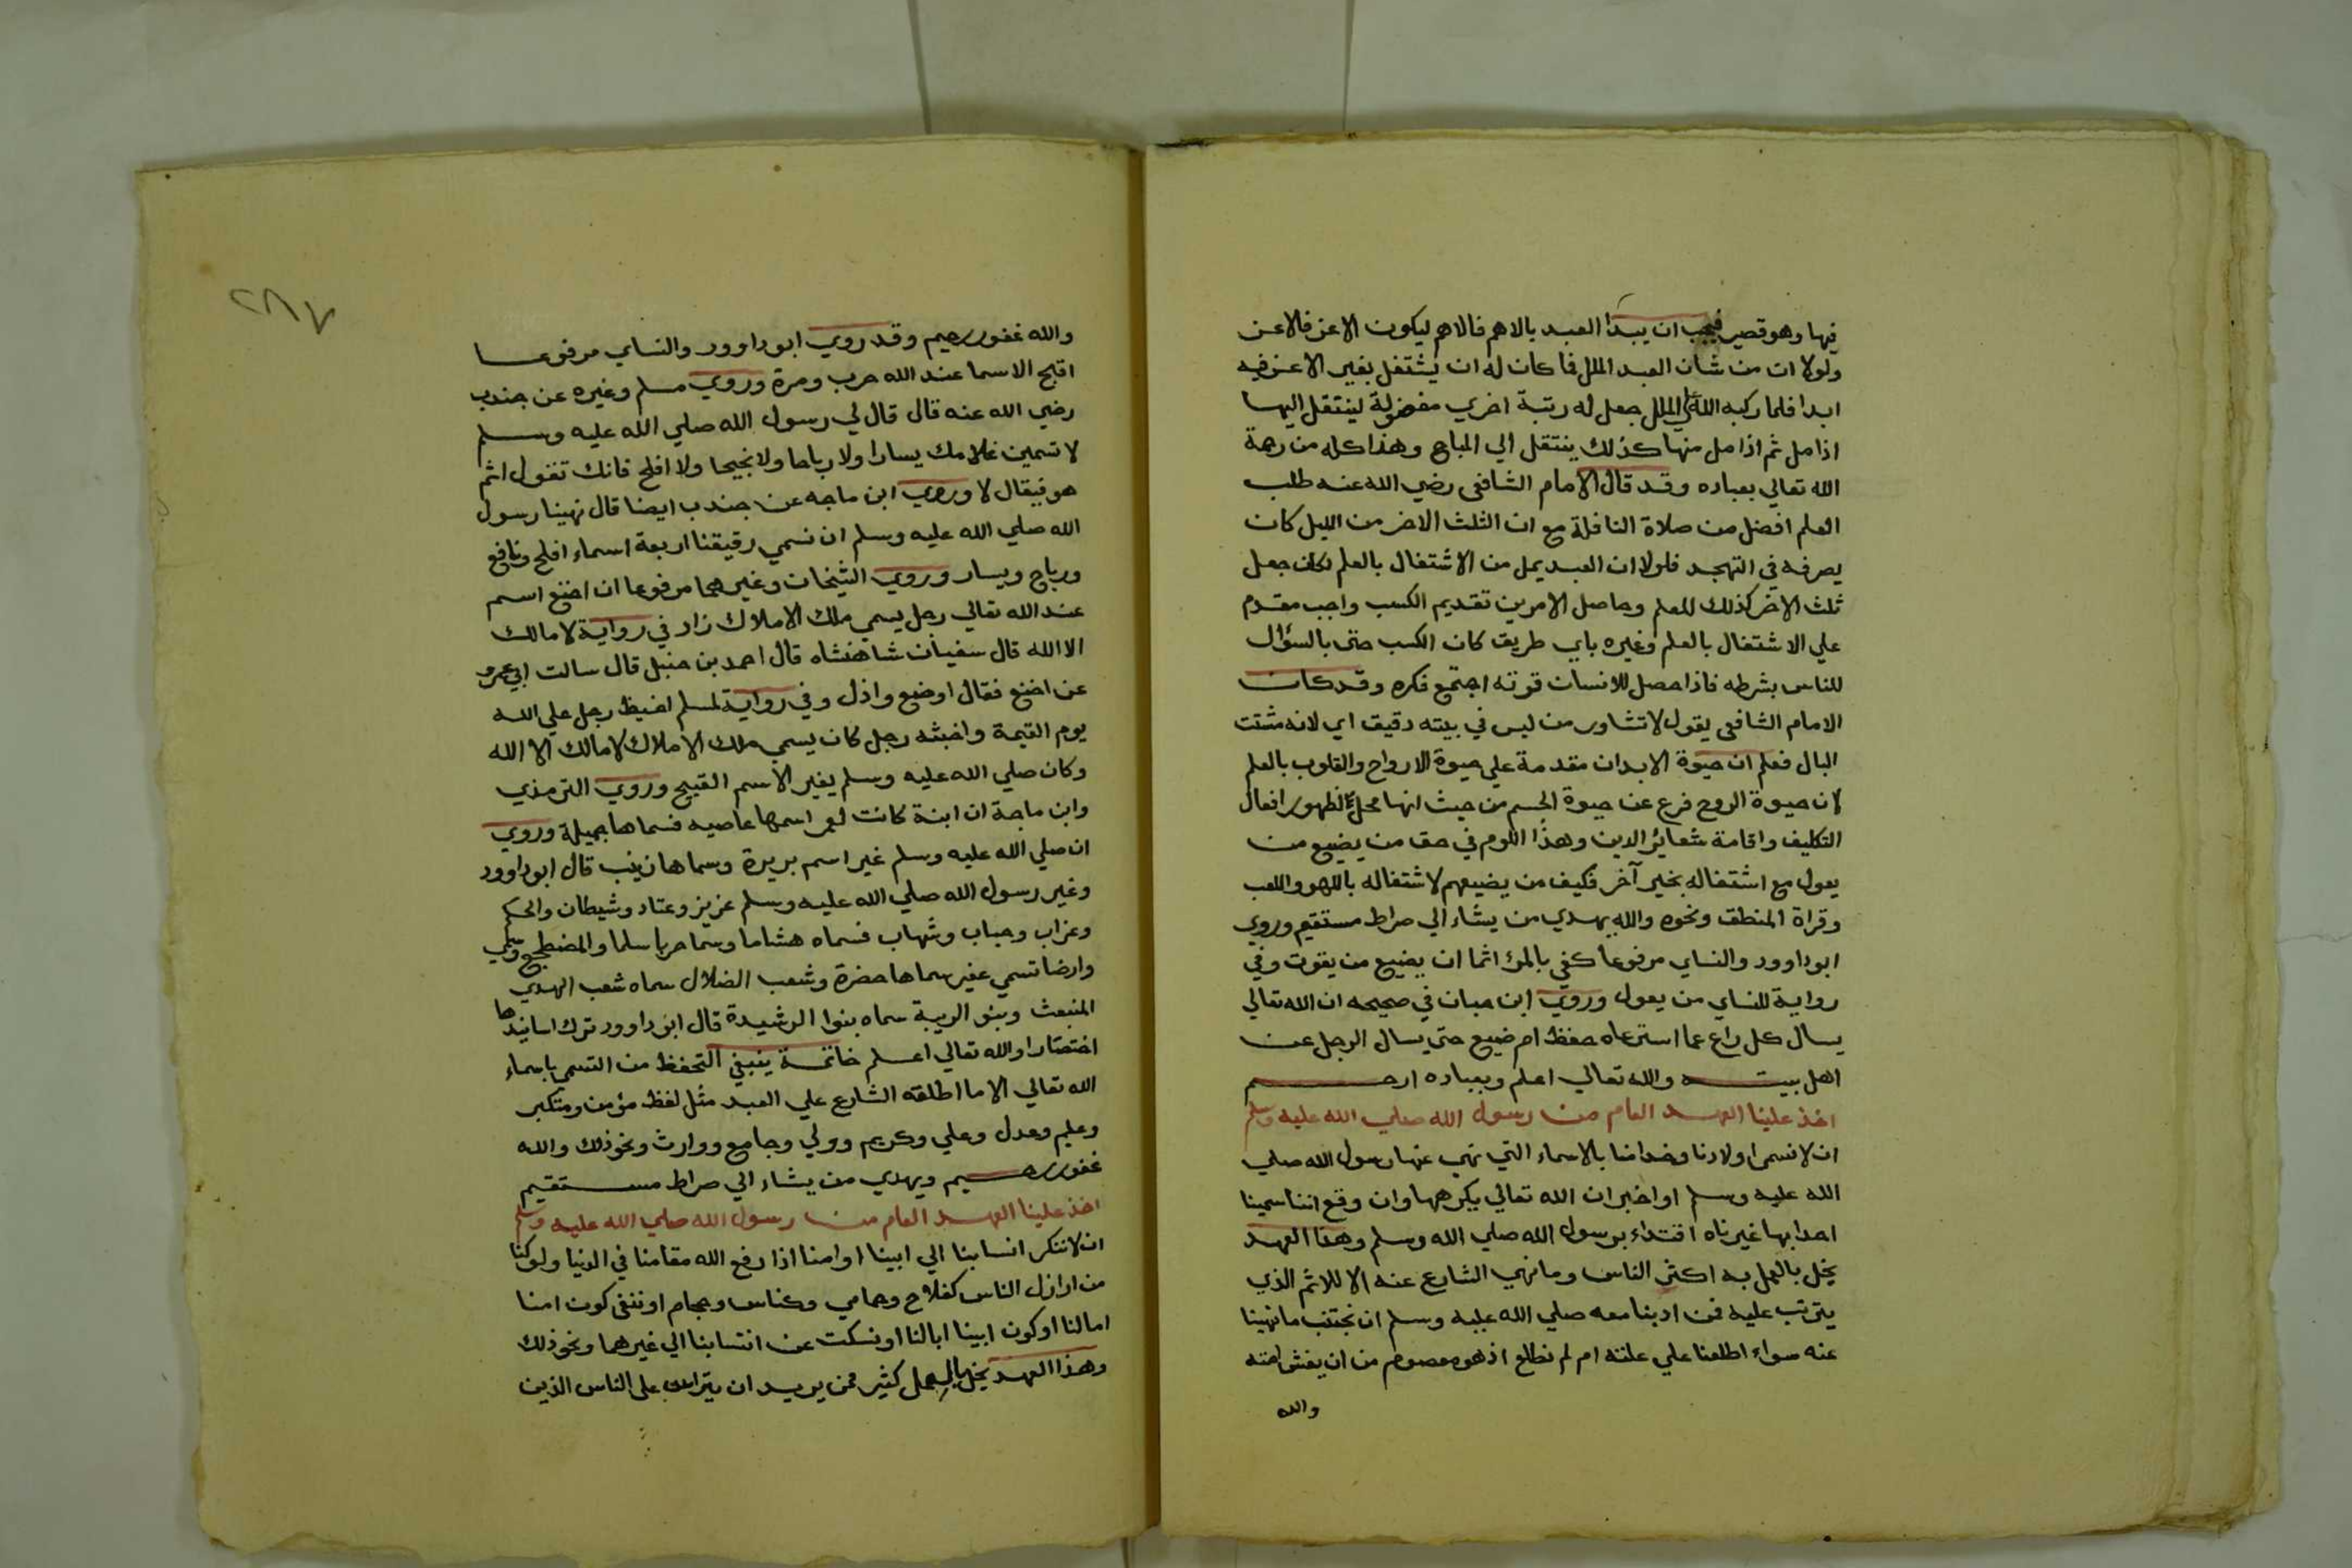 فيها وهو قصير فيجب ان يبدا العبد بالاهم فالاهم ليكون الاعز فالاعز
ولولا ان من شان العبد الملل فما كان له ان يشتغل بغير الاعز فيه
ابدا فلما ركبه الله علي الملل جعل له رتبة اخري مفضولة لينتقل اليها
اذا مل ثم اذا مل منها كذلك ينتقل الي المباح وهذا كله من رحمة
الله تعالي بعباده وقد قال الامام الشافعي رضي الله عنه طلب
العلم افضل من صلاة النافلة مع ان الثلث الاخر من الليل كان
يصرفه في التهجد فلولا ان العبد يمل من الاشتغال بالعلم لكان جعل
ثلث الاخر كذلك للعلم وحاصل الامرين تقديم الكسب واجب مقدم
علي الاشتغال بالعلم وغيره باي طريق كان الكسب حتى بالسؤال
للناس بشرطه فاذا حصل للانسان قوته اجتمع فكره وقد كان
الامام الشافعي يقول لا تشاور من ليس في بيته دقيق اي لانه مشتت
البال فعلم ان حيوة الابدان مقدمة علي حيوة الارواح والقلوب بالعلم
لان حيوة الروح فرع عن حيوة الجسم من حيث انها محل لظهور افعال
التكليف واقامة شعائر الدين وهذا اللوم في حق من يضيع من
يعول مع اشتغاله بخير آخر فكيف من يضيعهم لاشتغاله باللهو واللعب
وقراة المنطق ونحوه والله يهدي من يشاء الي صراط مستقيم وروي
ابو داوود والنساي مرفوعا كفي بالمرء اثما ان يضيع من يقوت وفي
رواية للنساي من يعول وروي ابن حبان في صحيحه ان الله تعالي
يسال كل راع عما استرعاه حفظ ام ضيع حتي يسال الرجل عن
اهل بيته والله تعالي اعلم وبعباده ارحم
اخذ علينا العهد العام من رسول الله صلي الله عليه وسلم
ان لا نسمى اولادنا وخدامنا بالاسماء التي نهي عنها رسول الله صلي
الله عليه وسلم او اخبر ان الله تعالي يكرهها وان وقع اننا سمينا
احدا بها غيرناه اقتداء برسول الله صلي الله وسلم وهذا العهد
يخل بالعمل به اكثر الناس وما نهي الشارع عنه الا للاثم الذي
يترتب عليه فمن ادبنا معه صلي الله عليه وسلم ان نجتنب ما نهينا
عنه سواء اطلعنا علي علته ام لم نطلع اذ هو معصوم من ان يغش امته
والله
٢٨٧
والله غفور رحيم وقد روي ابو داوود والنساي مرفوعا
اقبح الاسما عند الله حرب ومرة وروي مسلم وغيره عن جندب
رضي الله عنه قال قال لي رسول الله صلي الله عليه وسلم
لا تسمين غلامك يسارا ولا رباحا ولا نجيحا ولا افلح فانك تقول اثم
هو فيقال لا وروي ابن ماجه عن جندب ايضا قال نهينا رسول
الله صلي الله عليه وسلم ان نسمي رقيقنا اربعة اسماء افلح ونافع
ورباح ويسار وروي الشيخان وغيرهما مرفوعا ان اخنع اسم
عند الله تعالي رجل يسمي ملك الاملاك زاد في رواية لا مالك
الا الله قال سفيان شاهنشاه قال احمد بن حنبل قال سالت ابي عمرو
عن اخنع فقال اوضع واذل وفي رواية لمسلم اغيظ رجل علي الله
يوم القيمة واخبثه رجل كان يسمي ملك الاملاك لا مالك الا الله
وكان صلي الله عليه وسلم يغير الاسم القبيح وروي الترمذي
وابن ماجة ان ابنة كانت لعمر اسمها عاصيه فسماها جميلة وروي
ان صلي الله عليه وسلم غير اسم بريرة وسماها زينب قال ابو داوود
وغير رسول الله صلي الله عليه وسلم عزيز وعتاد وشيطان والحكم
وعزاب وحباب وشهاب فسماه هشاما وسما حربا سلما والمضطجع وسمي
وارضا تسمي عفير سماها حضرة وشعب الضلال سماه شعب الهدي
المنبعث وبنو الريبة سماه بنوا الرشيدة قال ابو داوود ترك اسانيدها
اختصارا والله تعالي اعلم خاتمة ينبغي التحفظ من التسمي باسماء
الله تعالي الا ما اطلقه الشارع علي العبد مثل لفظ مؤمن ومتكبر
وعليم وعدل وعلي وكريم وولي وجامع ووارث ونحو ذلك والله
غفور رحيم ويهدي من يشاء الي صراط مستقيم
اخذ علينا العهد العام من رسول الله صلي الله عليه وسلم
ان لا ننكر انسابنا الي ابينا او امنا اذا رفع الله مقامنا في الدنيا ولو كنا
من اراذل الناس كفلاح وحمامي وكناس وحجام او ننفى كون امنا
اما لنا او كون ابينا ابا لنا او نسكت عن انتسابنا الي غيرهما ونحو ذلك
وهذا العهد يخل بالعمل كثير ممن يريد ان يتراس على الناس الذين